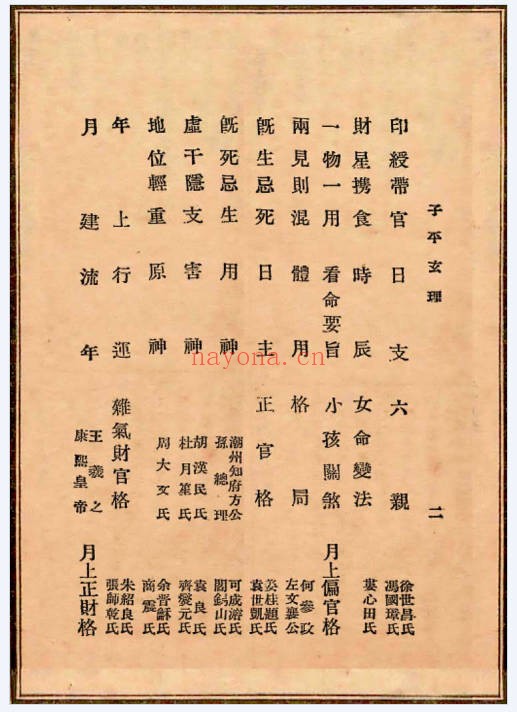 子平玄理 二
印綬帶官 日支 六親 徐世昌氏
馮國璋氏
財星携食 時辰 女命變法 婁心田氏
一物一用 看命要旨 小孩關煞 月上偏官格
兩見則混 體用 格局 何參政
左文襄公
既生忌死 日主 正官格 姜桂題氏
袁世凱氏
既死忌生 用神 潮州知府方公 可成濬氏
孫總理 閻錫山氏
虛干隱支 害神 胡漢民氏 袁良氏
杜月笙氏 齊燮元氏
地位輕重 原神 周大文氏 余晉龢氏
商震氏
年上行運 雜氣財官格 朱紹良氏
張師乾氏
月建流年 王羲之 月上正財格
康熙皇帝
nayona.cn